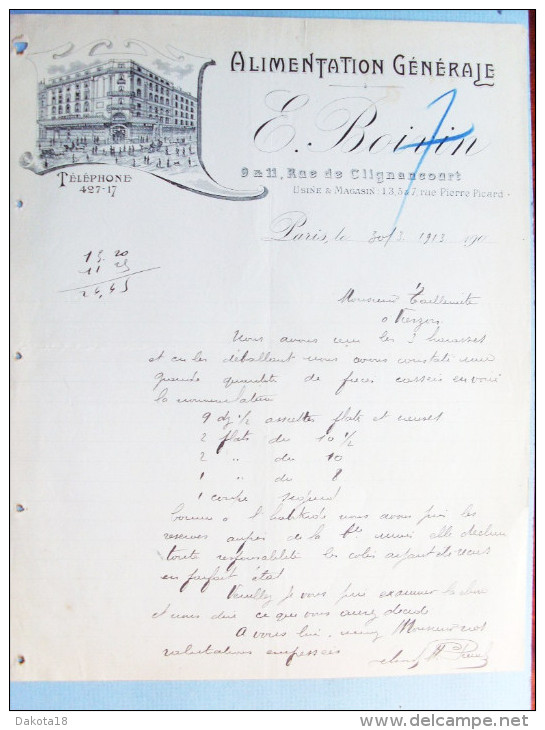 ALIMENTATION GÉNÉRALE
E. Boisin
9 & 11, Rue de Clignancourt
USINE & MAGASIN : 1.3.5 & 7, rue Pierre Picard
TÉLÉPHONE
427-17
Paris, le 30/3 1913 190
15. 20
11 25
26,45
Monsieur
Nous avons reçu les 3 harasses
et en les déballant nous avons constaté une
grande quantité de pièces cassées en voici
la nomenclature
9 dz ½ assiettes plate et creuses
2 plats de 10 ½
2 " de 10
1 " de 8
1 coupe
Comme à l'habitude nous avons pris les
réserves auprès de la Cie mais elle décline
toute responsabilité les colis ayant été reçus
en parfait état
Veuillez je vous prie examiner la chose
et nous dire ce que vous aurez décidé
A vous lire, recevez Monsieur nos
salutations empressées
Dakota18
delcampe.net